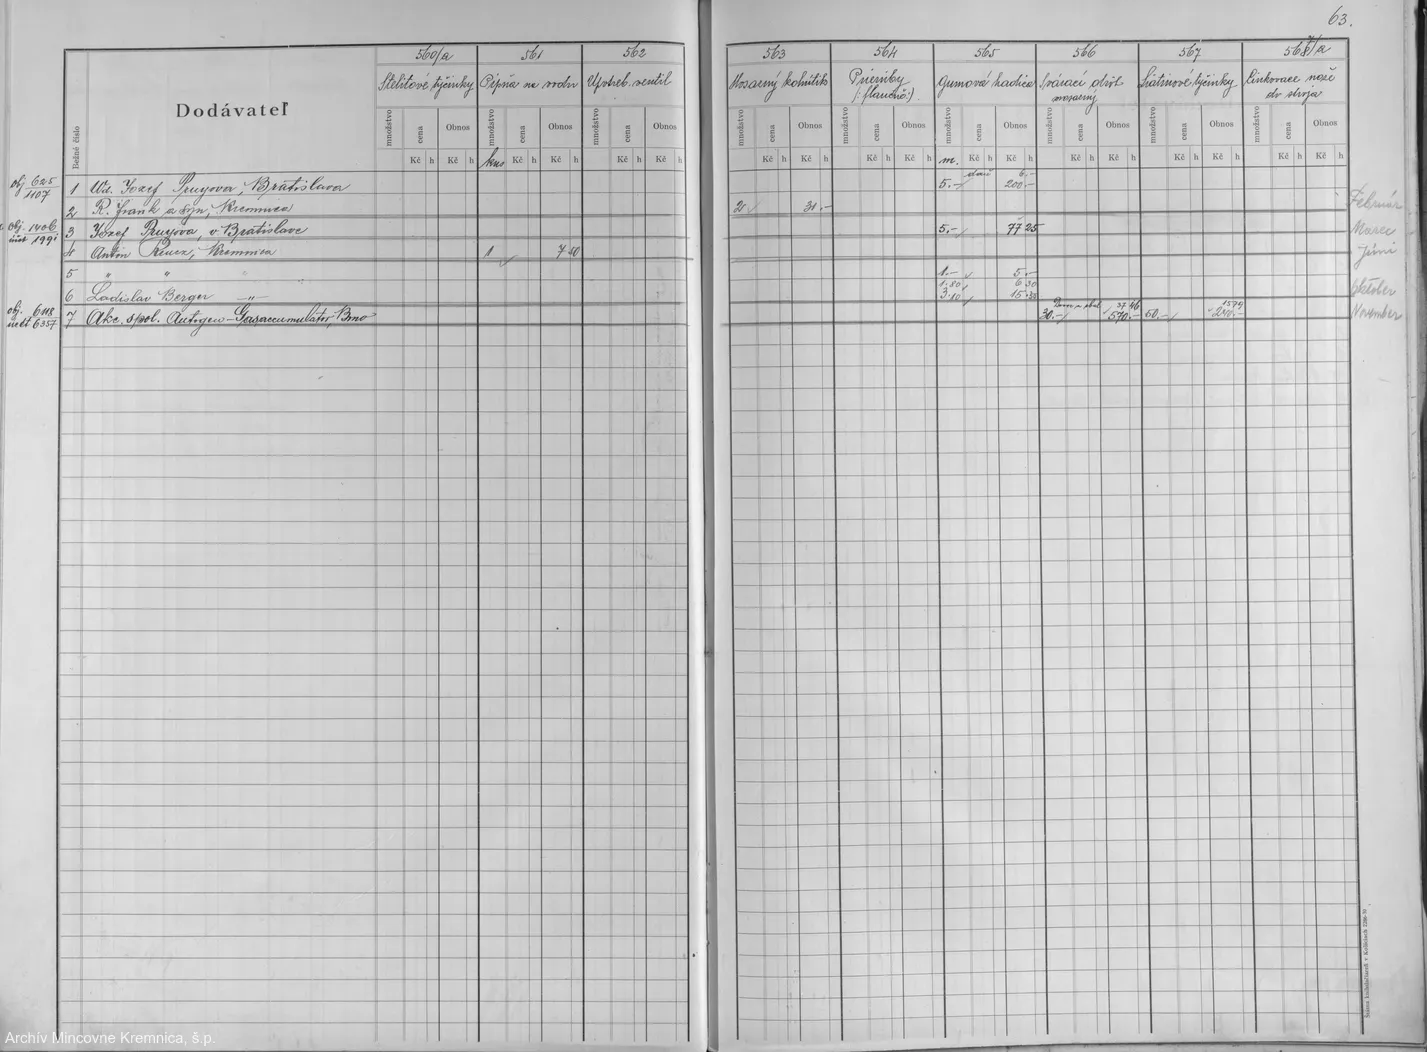 63.
560/a 561 562 563 564 565 566 567 568/a
Dodávateľ
Bežné číslo
Stelitové tyčinky
Pípňa na vodu
Upotreb. ventil
Mosazný kohútik
Prieruby
Gumová hadica
Svárací drôt
mosazný
tyčinky
Linkovace nože
do stroja
množstvo cena Obnos množstvo cena Obnos množstvo cena Obnos množstvo cena Obnos množstvo cena Obnos množstvo cena Obnos množstvo cena Obnos množstvo cena Obnos množstvo cena Obnos
Kč h Kč h kus Kč h Kč h Kč h Kč h Kč h Kč h Kč h Kč h m. Kč h Kč h Kč h Kč h Kč h Kč h Kč h Kč h
obj. 625
1107
1 Wd. Jozef Bratislava daň 6.- 5.- 200.-
2 R. Frank a syn, Kremnica 2 31.- Február
obj. 1406
účt 1991
3 Jozef v Bratislave 5.- 77 25 Marec
4 Anton Kremnica 1 7 50 Júni
5 " " " 1.- 5.-
1.80 6 30
6 Ladislav Berger -"- 3.10 15.35 Október
obj. 6118
účt 6357
7 Akc. spol. Autogen-Gasaccumulátor, Brno 30.- 37 46 570.- 50.- 240.- November
Archív Mincovne Kremnica, š.p.